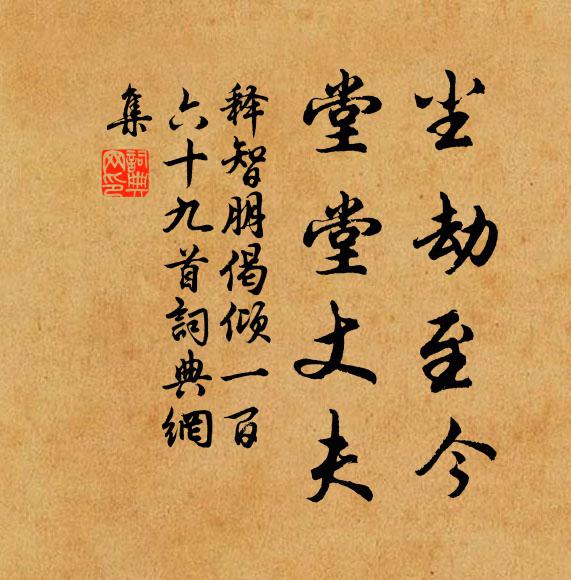 尘劫至今
堂堂丈夫
释智朋偈倾一百
六十九首詞典網
集
詞典網印